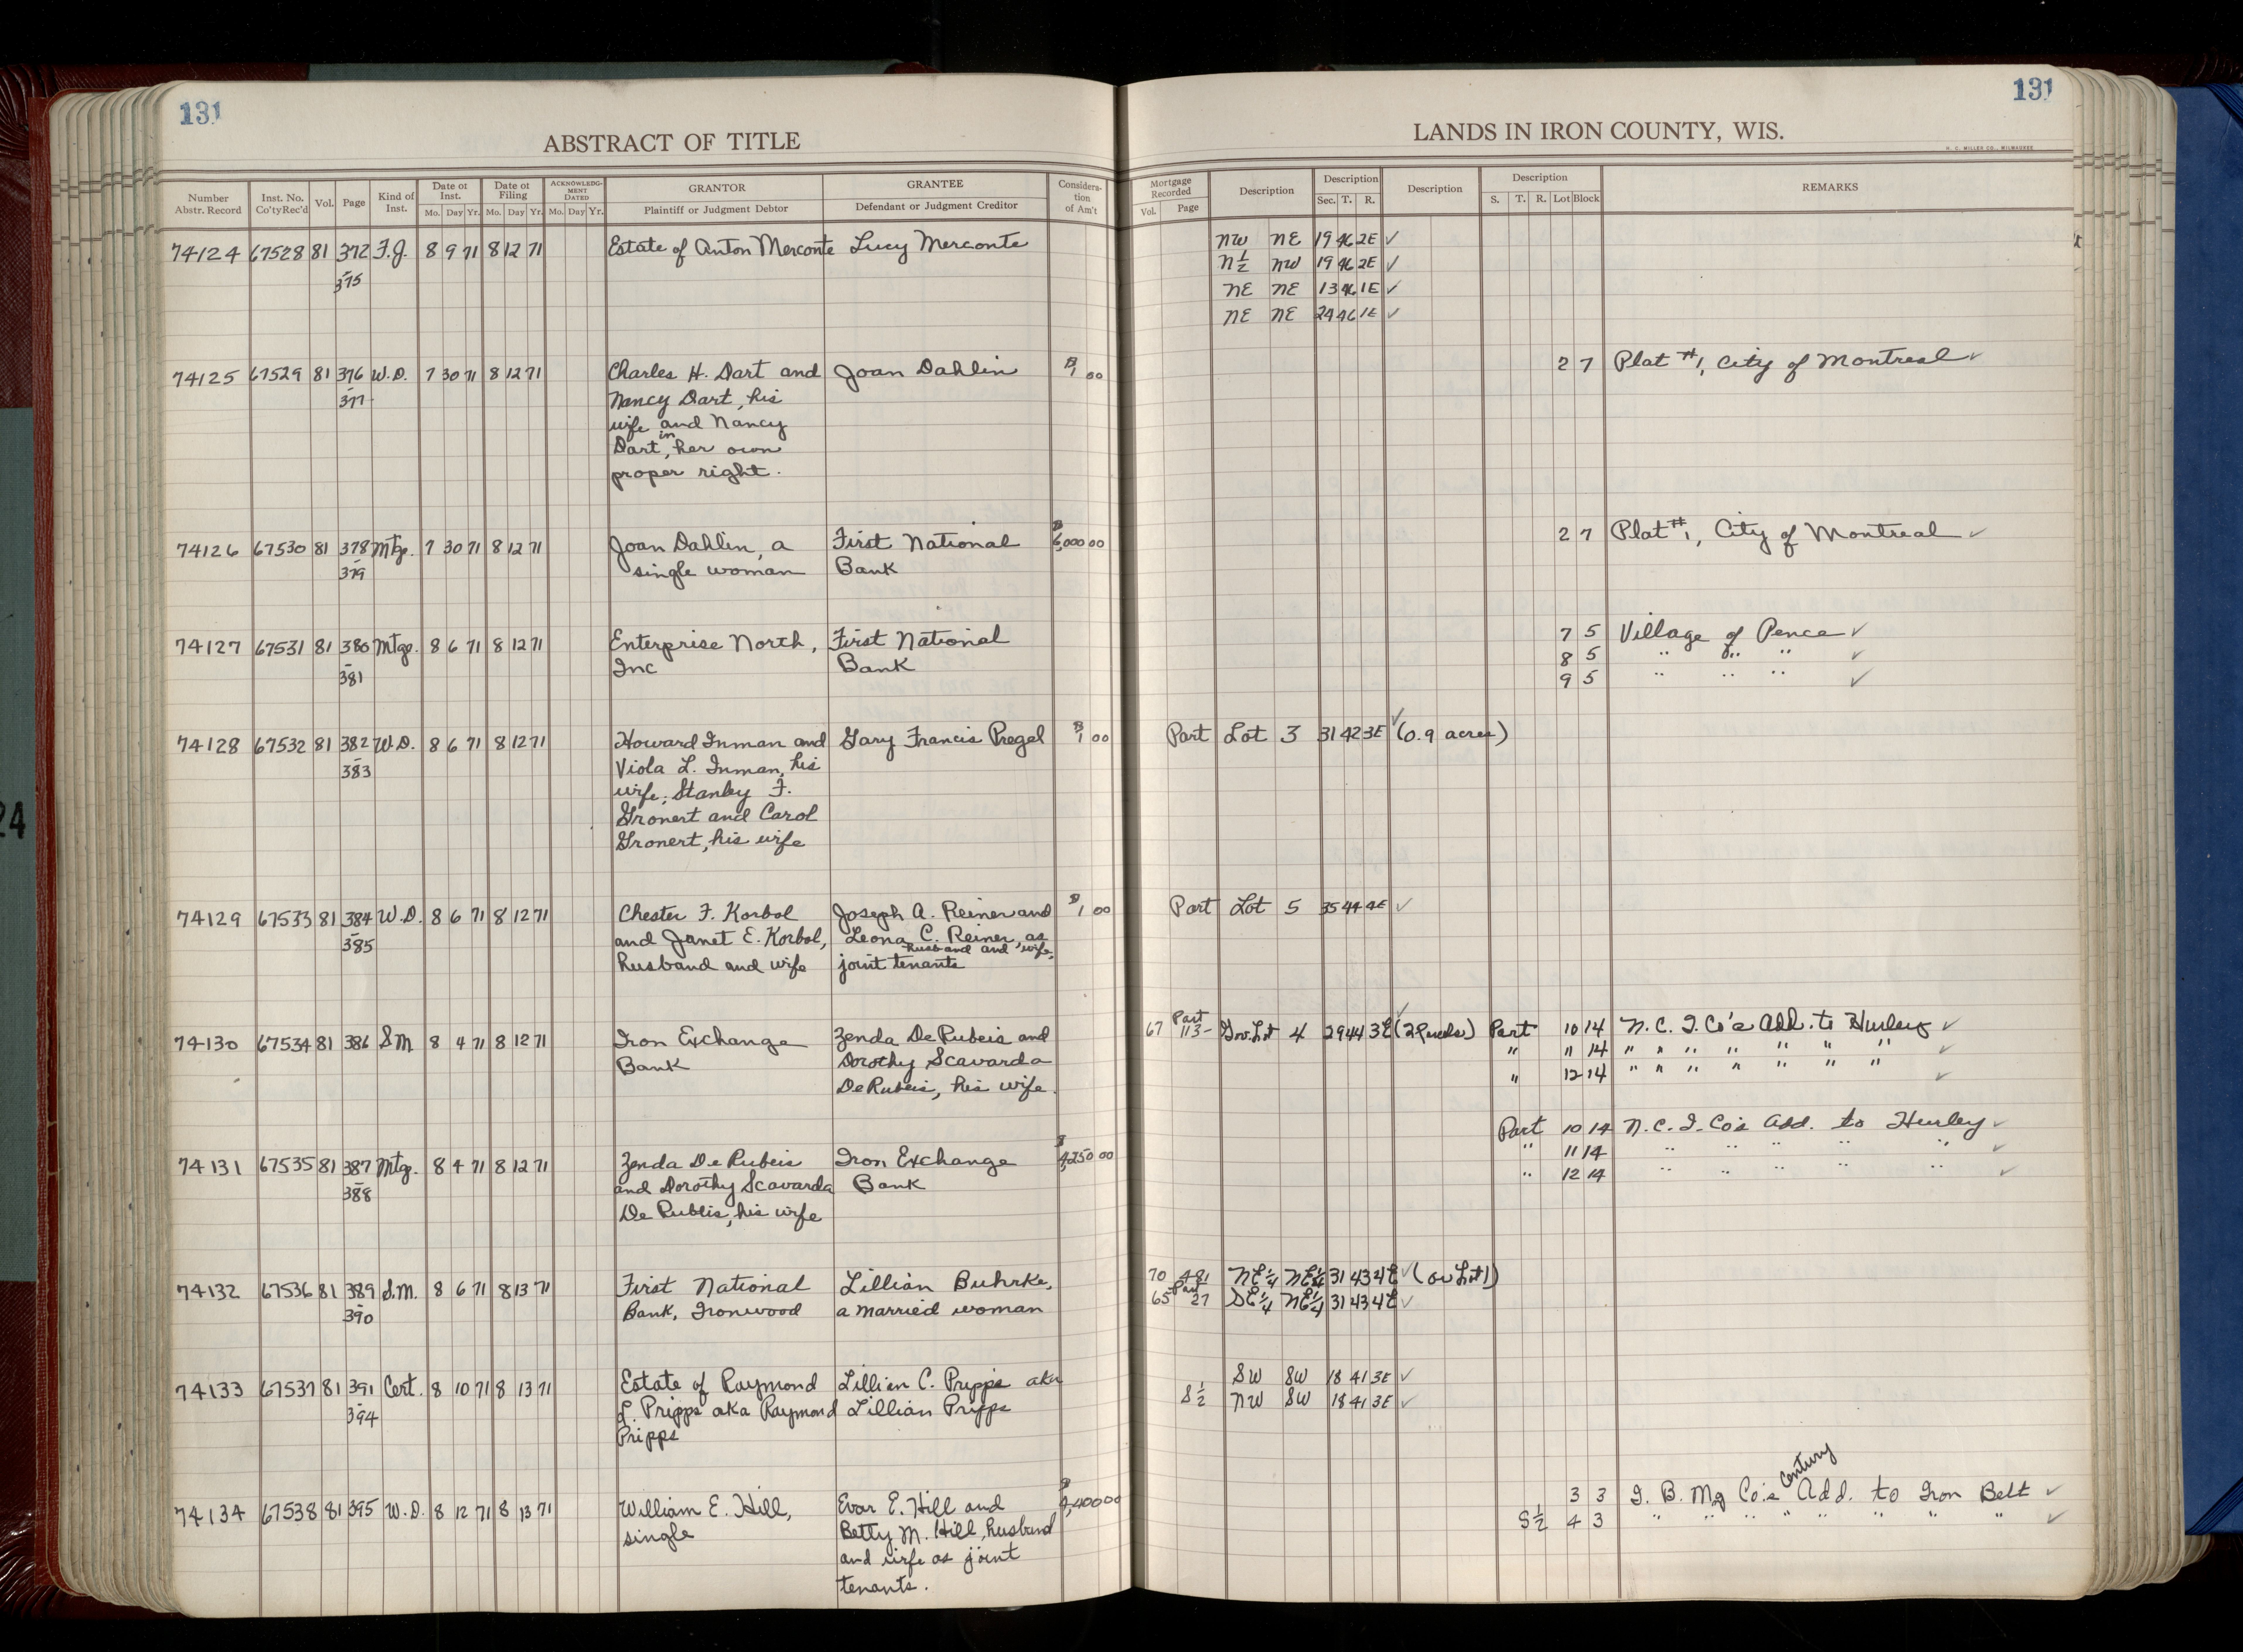 131
131
ABSTRACT OF TITLE
LANDS IN IRON COUNTY, WIS.
H. C. MILLER CO., MILWAUKEE
Number Abstr. Record Inst. No. Co'ty Rec'd Vol. Page Kind of Inst. Date of Inst. Mo. Day Yr. Date of Filing Mo. Day Yr. ACKNOWLEDGMENT DATED Mo. Day Yr. GRANTOR Plaintiff or Judgment Debtor GRANTEE Defendant or Judgment Creditor Consideration of Am't
Mortgage Recorded Vol. Page Description Description Sec. T. R. Description Description S. T. R. Lot Block REMARKS
74124 67528 81 372 F.J. 8 9 71 8 12 71 Estate of Anton Merconte Lucy Merconte NW NE 19 46 2E ✓
375 N½ NW 19 46 2E ✓
NE NE 13 46 1E ✓
NE NE 24 46 1E ✓
74125 67529 81 376 W.D. 7 30 71 8 12 71 Charles H. Dart and Joan Dahlin $1 00 2 7 Plat #1, City of Montreal ✓
377 Nancy Dart, his
wife and Nancy
Dart, in her own
proper right.
74126 67530 81 378 Mtg. 7 30 71 8 12 71 Joan Dahlin, a First National $6,000 00 2 7 Plat #1, City of Montreal ✓
379 single woman Bank
74127 67531 81 380 Mtge. 8 6 71 8 12 71 Enterprise North, First National 7 5 Village of Pence ✓
381 Inc Bank 8 5 " " " ✓
9 5 " " " ✓
74128 67532 81 382 W.D. 8 6 71 8 12 71 Howard Inman and Gary Francis Pregel $1 00 Part Lot 3 31 42 3E ✓ (0.9 acres)
383 Viola L. Inman, his
wife; Stanley F.
Gronert and Carol
Gronert, his wife
74129 67533 81 384 W.D. 8 6 71 8 12 71 Chester F. Korbol Joseph A. Reiner and $1 00 Part Lot 5 35 44 4E ✓
385 and Janet E. Korbol, Leona C. Reiner, husband and wife, as
husband and wife joint tenants
74130 67534 81 386 S.M 8 4 71 8 12 71 Iron Exchange Zenda DeRubeis and 67 Part 113- Gov. Lot 4 29 44 3E ✓ (2 Parcels) Part 10 14 N.C.I. Co's Add. to Hurley ✓
Bank Dorothy Scavarda " 11 14 " " " " " " " ✓
DeRubeis, his wife. " 12 14 " " " " " " " ✓
74131 67535 81 387 Mtg. 8 4 71 8 12 71 Zenda DeRubeis Iron Exchange $4,250 00 Part 10 14 N.C.I. Co's Add. to Hurley ✓
388 and Dorothy Scavarda Bank " 11 14 " " " " " ✓
De Rubeis, his wife " 12 14 " " " " " ✓
74132 67536 81 389 S.M. 8 6 71 8 13 71 First National Lillian Buhrke, 70 481 NE¼ NE¼ 31 43 4E ✓ (or Lot 1)
390 Bank, Ironwood a married woman 65 Part 27 SE¼ NE¼ 31 43 4E ✓
74133 67537 81 391 Cert. 8 10 71 8 13 71 Estate of Raymond Lillian C. Pripps aka SW SW 18 41 3E ✓
394 L. Pripps aka Raymond Lillian Pripps S½ NW SW 18 41 3E ✓
Pripps
74134 67538 81 395 W.D. 8 12 71 8 13 71 William E. Hill, Evar E. Hill and $4,400 00 3 3 I. B. Mg Co's Century Add. to Iron Belt ✓
single Betty M. Hill, husband S½ 4 3 " " " " " " " " ✓
and wife as joint
tenants.
24